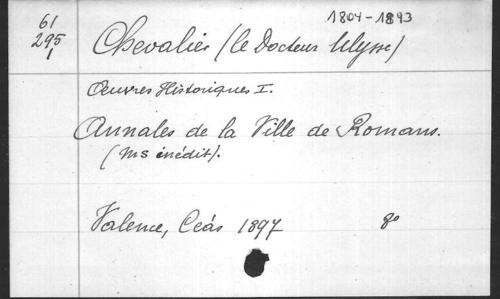 1804-1893
61
295
1
Chevalier (le Docteur Ulysse)
Œuvres Historiques I.
Annales de la Ville de Romans.
(ms inédit).
Valence, Céas 1897 8o